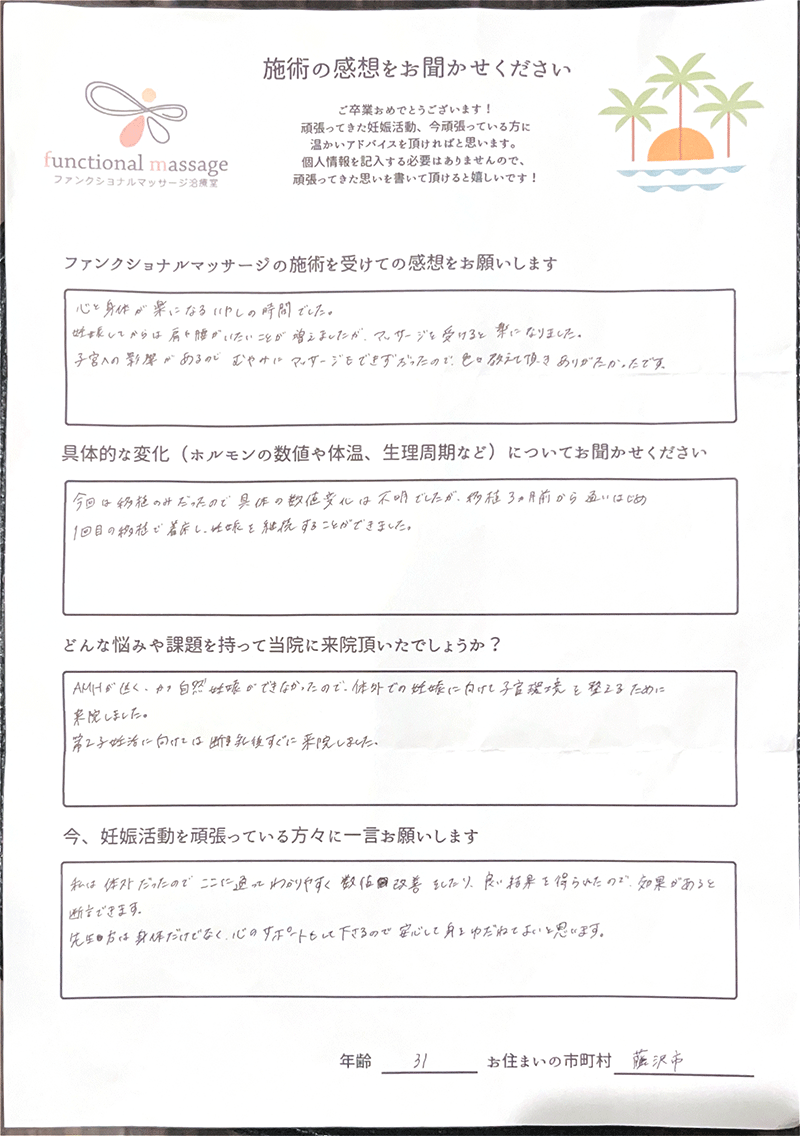 施術の感想をお聞かせください
ご卒業おめでとうございます！
頑張ってきた妊娠活動、今頑張っている方に
温かいアドバイスを頂ければと思います。
個人情報を記入する必要はありませんので、
頑張ってきた思いを書いて頂けると嬉しいです！
functional massage
ファンクショナルマッサージ治療室
ファンクショナルマッサージの施術を受けての感想をお願いします
心と身体が楽になるいやしの時間でした。
妊娠してからは肩や腰がいたいことが増えましたが、マッサージを受けると楽になりました。
子宮への影響があるのでむやみにマッサージもできずだったので、色々教えて頂きありがたかったです。
具体的な変化（ホルモンの数値や体温、生理周期など）についてお聞かせください
今回は移植のみだったので具体の数値変化は不明でしたが、移植3ヵ月前から通いはじめ
1回目の移植で着床し、妊娠を継続することができました。
どんな悩みや課題を持って当院に来院頂いたでしょうか？
AMHが低く、かつ自然妊娠ができなかったので、体外での妊娠に向けて子宮環境を整えるために
来院しました。
第2子妊活に向けては断乳後すぐに来院しました。
今、妊娠活動を頑張っている方々に一言お願いします
私は体外だったのでここに通ってわかりやすく数値改善をしたり、良い結果を得られたので、効果があると
断言できます。
先生方は身体だけでなく、心のサポートもして下さるので安心して身をゆだねてよいと思います。
年齢 31 お住まいの市町村 藤沢市